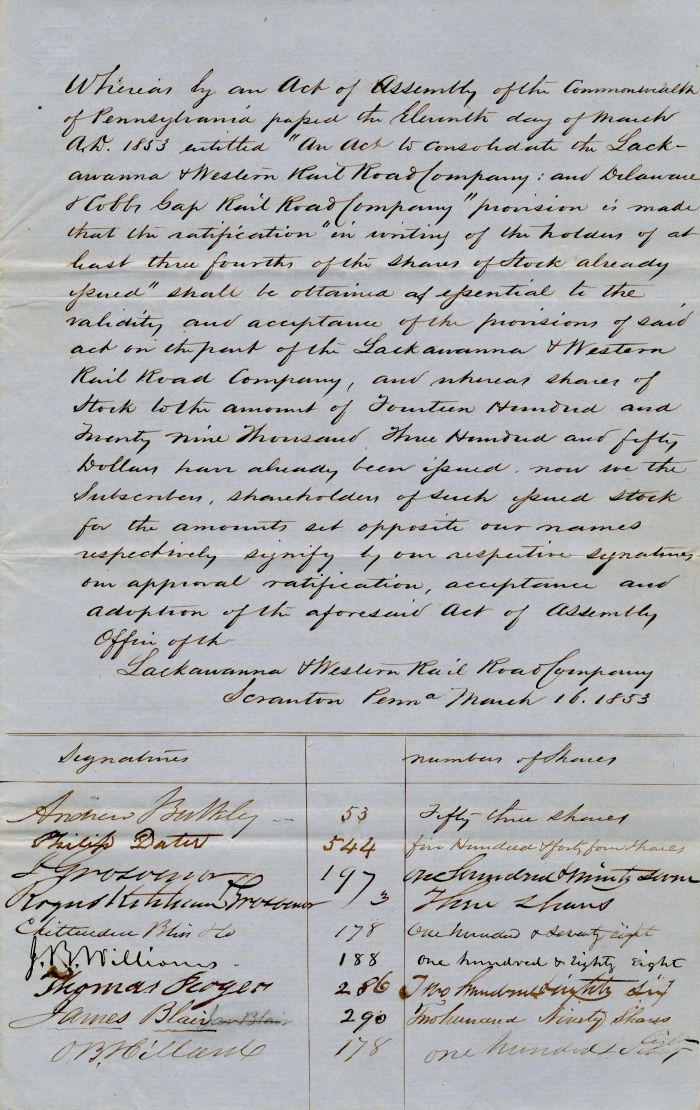 Whereas by an Act of Assembly of the Commonwealth
of Pennsylvania passed the Eleventh day of March
A.D. 1853 entitled "An Act to consolidate the Lack-
awanna & Western Rail Road Company: and Delaware
& Cobbs Gap Rail Road Company" provision is made
that the ratification "in writing of the holders of at
least three fourths of the shares of Stock already
issued" shall be obtained as essential to the
validity and acceptance of the provisions of said
act on the part of the Lackawanna & Western
Rail Road Company, and whereas shares of
Stock to the amount of Fourteen Hundred and
Twenty nine Thousand Three Hundred and fifty
Dollars have already been issued. now we the
Subscribers, shareholders of such issued stock
for the amounts set opposite our names
respectively signify by our respective signatures
our approval ratification, acceptance and
adoption of the aforesaid Act of Assembly
Office of the
Lackawanna & Western Rail Road Company
Scranton Penna March 16. 1853
Signatures numbers of Shares
Andrew Bulkley 53 Fifty three shares
Philip Dater 544 five Hundred & forty four shares
J Grosvenor 197 One hundred & Ninety seven
Grosvenor 3 Three shares
Chittenden Bliss & Co 178 One hundred & seventy eight
J. B. Williams. 188 one hundred & eighty eight
Thomas 286 Two hundred & eighty six
James Blair Jas Blair 290 Two hundred Ninety Shares
O. B. Hillard 178 one hundred &